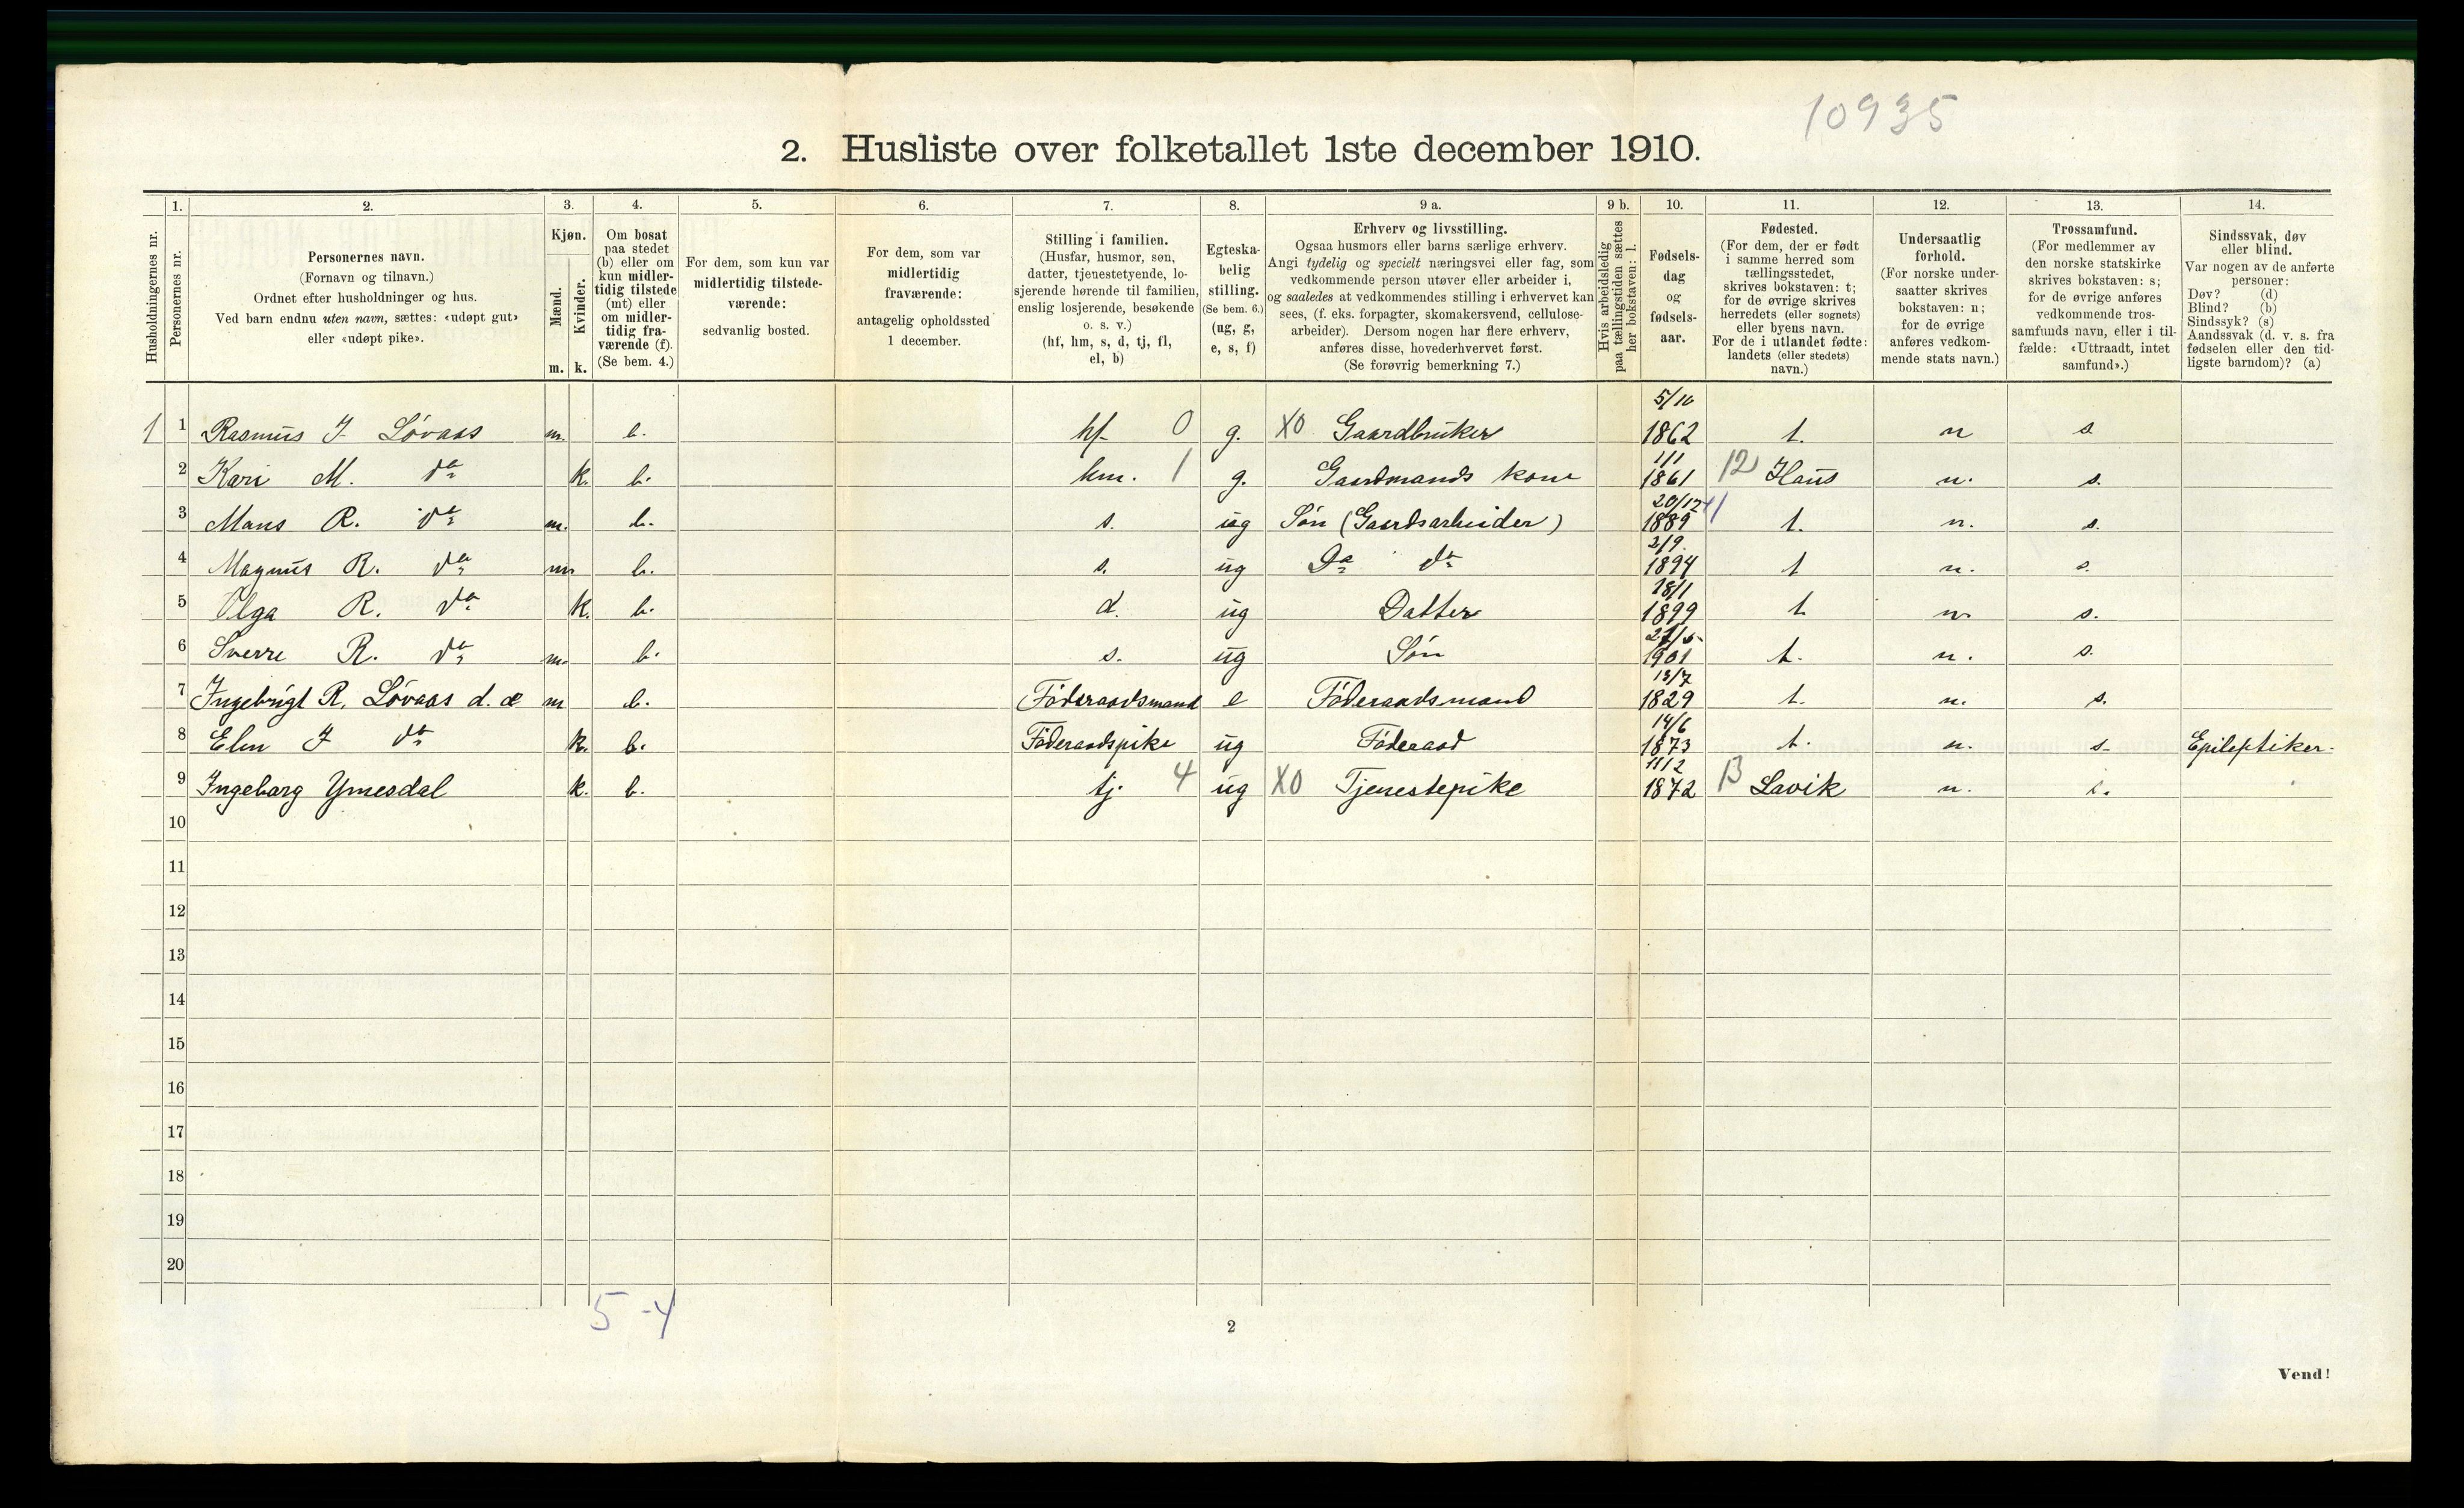 10935
2. Husliste over folketallet 1ste december 1910.
Husholdningernes nr.
1. Personernes nr.
2. Personernes navn.
(Fornavn og tilnavn.)
Ordnet efter husholdninger og hus.
Ved barn endnu uten navn, sættes: «udøpt gut»
eller «udøpt pike».
3. Kjøn.
Mænd. m.
Kvinder. k.
4. Om bosat
paa stedet
(b) eller om
kun midler-
tidig tilstede
(mt) eller
om midler-
tidig fra-
værende (f).
(Se bem. 4.)
5. For dem, som kun var
midlertidig tilstede-
værende:
sedvanlig bosted.
6. For dem, som var
midlertidig
fraværende:
antagelig opholdssted
1 december.
7. Stilling i familien.
(Husfar, husmor, søn,
datter, tjenestetyende, lo-
sjerende hørende til familien,
enslig losjerende, besøkende
o. s. v.)
(hf, hm, s, d, tj, fl,
el, b)
8. Egteska-
belig
stilling.
(Se bem. 6.)
(ug, g,
e, s, f)
9 a. Erhverv og livsstilling.
Ogsaa husmors eller barns særlige erhverv.
Angi tydelig og specielt næringsvei eller fag, som
vedkommende person utøver eller arbeider i,
og saaledes at vedkommendes stilling i erhvervet kan
sees, (f. eks. forpagter, skomakersvend, cellulose-
arbeider). Dersom nogen har flere erhverv,
anføres disse, hovederhvervet først.
(Se forøvrig bemerkning 7.)
9 b. Hvis arbeidsledig
paa tællingstiden sættes
her bokstaven: l.
10. Fødsels-
dag
og
fødsels-
aar.
11. Fødested.
(For dem, der er født
i samme herred som
tællingsstedet,
skrives bokstaven: t;
for de øvrige skrives
herredets (eller sognets)
eller byens navn.
For de i utlandet fødte:
landets (eller stedets)
navn.)
12. Undersaatlig
forhold.
(For norske under-
saatter skrives
bokstaven: n;
for de øvrige
anføres vedkom-
mende stats navn.)
13. Trossamfund.
(For medlemmer av
den norske statskirke
skrives bokstaven: s;
for de øvrige anføres
vedkommende tros-
samfunds navn, eller i til-
fælde: «Uttraadt, intet
samfund».)
14. Sindssvak, døv
eller blind.
Var nogen av de anførte
personer:
Døv? (d)
Blind? (b)
Sindssyk? (s)
Aandssvak (d. v. s. fra
fødselen eller den tid-
ligste barndom)? (a)
1 1 Rasmus I Lóvaas m. b. hf. 0 g. X0 Gaardbruker 5/10 1862 t. n s
2 Kari M. do k. b. hm. 1 g. Gaardmands kone 1/1 1861 12 Haus n. s.
3 Mans R. do m. b. s. ug Són (Gaardsarbeider) 20/12 1889 t. n. s.
4 Magnus R. do m b. s. ug Do do 2/9 1894 t n. s.
5 Olga R. do k. b. d. ug Datter 18/1 1899 t n. s.
6 Sverre R. do m. b. s. ug Són 1901 t. n. s.
7 Ingebrigt R. Lóvaas d. æ m b. Fóderaadsmand e Fóderaadsmand 13/7 1829 t. n. s.
8 Elen I do k. b. Fóderaadspike ug Fóderaad 14/6 1873 t. n. s Epileptiker.
9 Ingeborg Ymesdal k. b. tj 4 ug X0 Tjenestepike 11/2 1872 13 Lavik n. s.
10
11
12
13
14
15
16
17
18
19
20
5 - 4
2
Vend!